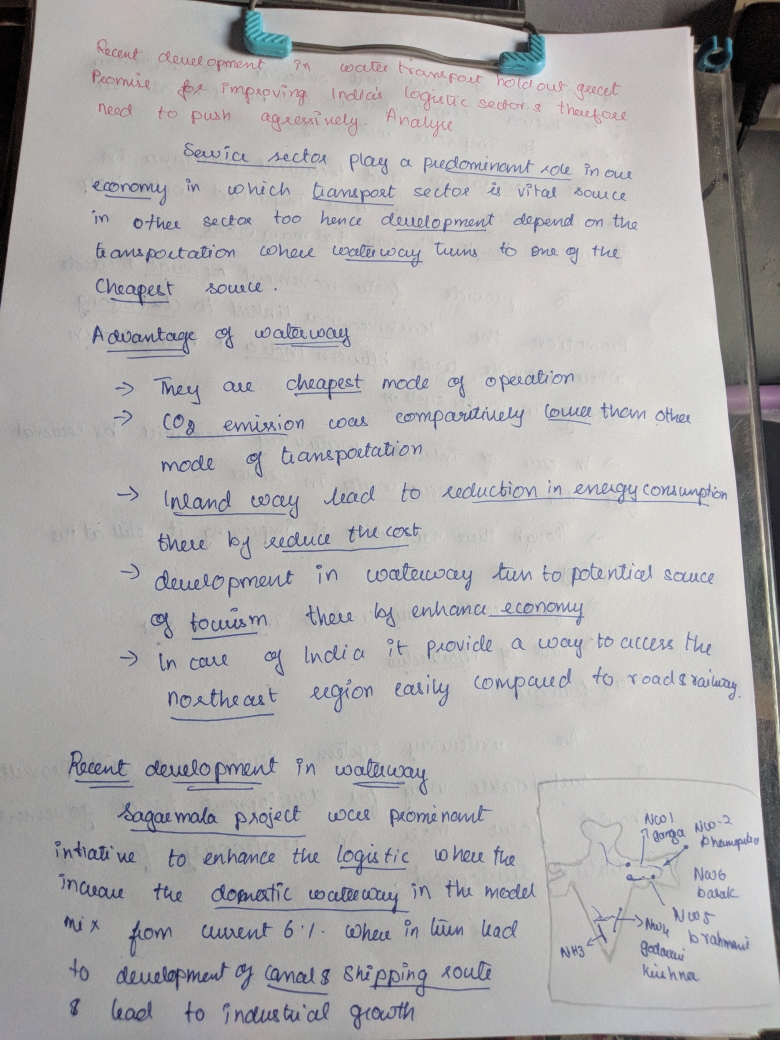 Recent development in water transport hold out great
Promise for improving India's logistic sector & therefore
need to push agressively. Analyse
Service sector play a predominant role in our
economy in which transport sector is vital source
in other sector too hence development depend on the
transportation where waterway turns to one of the
cheapest source.
Advantage of waterway
→ They are cheapest mode of operation
→ CO2 emission was comparitively lower than other
mode of transportation
→ Inland way lead to reduction in energy consumption
there by reduce the cost
→ development in waterway turn to potential source
of tourism there by enhance economy
→ In case of India it provide a way to access the
northeast region easily compared to road & railway.
Recent development in waterway
Sagarmala project was prominant
intiative to enhance the logistic where the
increase the domestic waterway in the model
mix from current 6%. where in turn lead
to development of canal & shipping route
& lead to industrial growth
NW1
ganga
NW-2
bhramputra
NW6
barak
NW5
brahmani
NW4
godavari
krishna
NH3